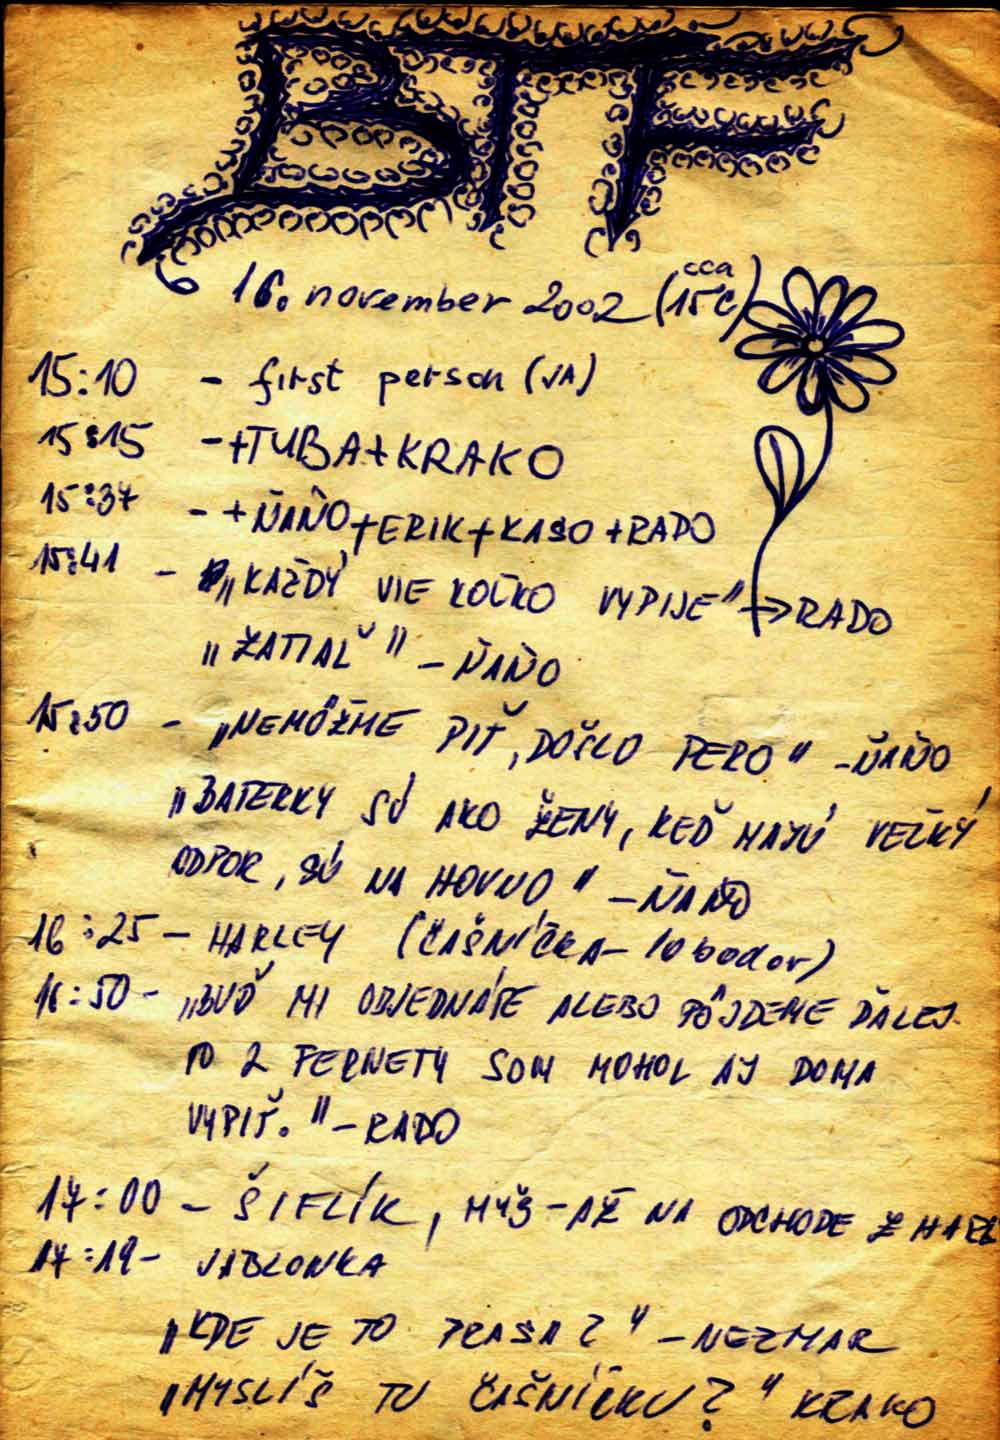 BTF
16. november 2002 (cca 15°C)
15:10 - first person (JA)
15:15 - +TUBA+KRAKO
15:37 - +ŇAŇO+ERIK+KASO+RADO
15:41 - „KAŽDÝ VIE KOĽKO VYPIJE" → RADO
„ZATIAĽ" - ŇAŇO
15:50 - „NEMÔŽME PIŤ, DOŠLO PERO" - ŇAŇO
„BATERKY SÚ AKO ŽENY, KEĎ MAJÚ VEĽKÝ
ODPOR, SÚ NA HOVNO" - ŇAŇO
16:25 - HARLEY (ČAŠNÍČKA - 10 bodov)
16:50 - „BUĎ MI OBJEDNÁTE ALEBO PÔJDEME ĎALEJ.
TO 2 FERNETY SOM MOHOL AJ DOMA
VYPIŤ." - RADO
17:00 - ŠIFLÍK, MYŠ - AŽ NA ODCHODE Z HARL
17:19 - JABLONKA
„KDE JE TO PRASA?" - NEZMAR
„MYSLÍŠ TU ČAŠNÍČKU?" KRAKO